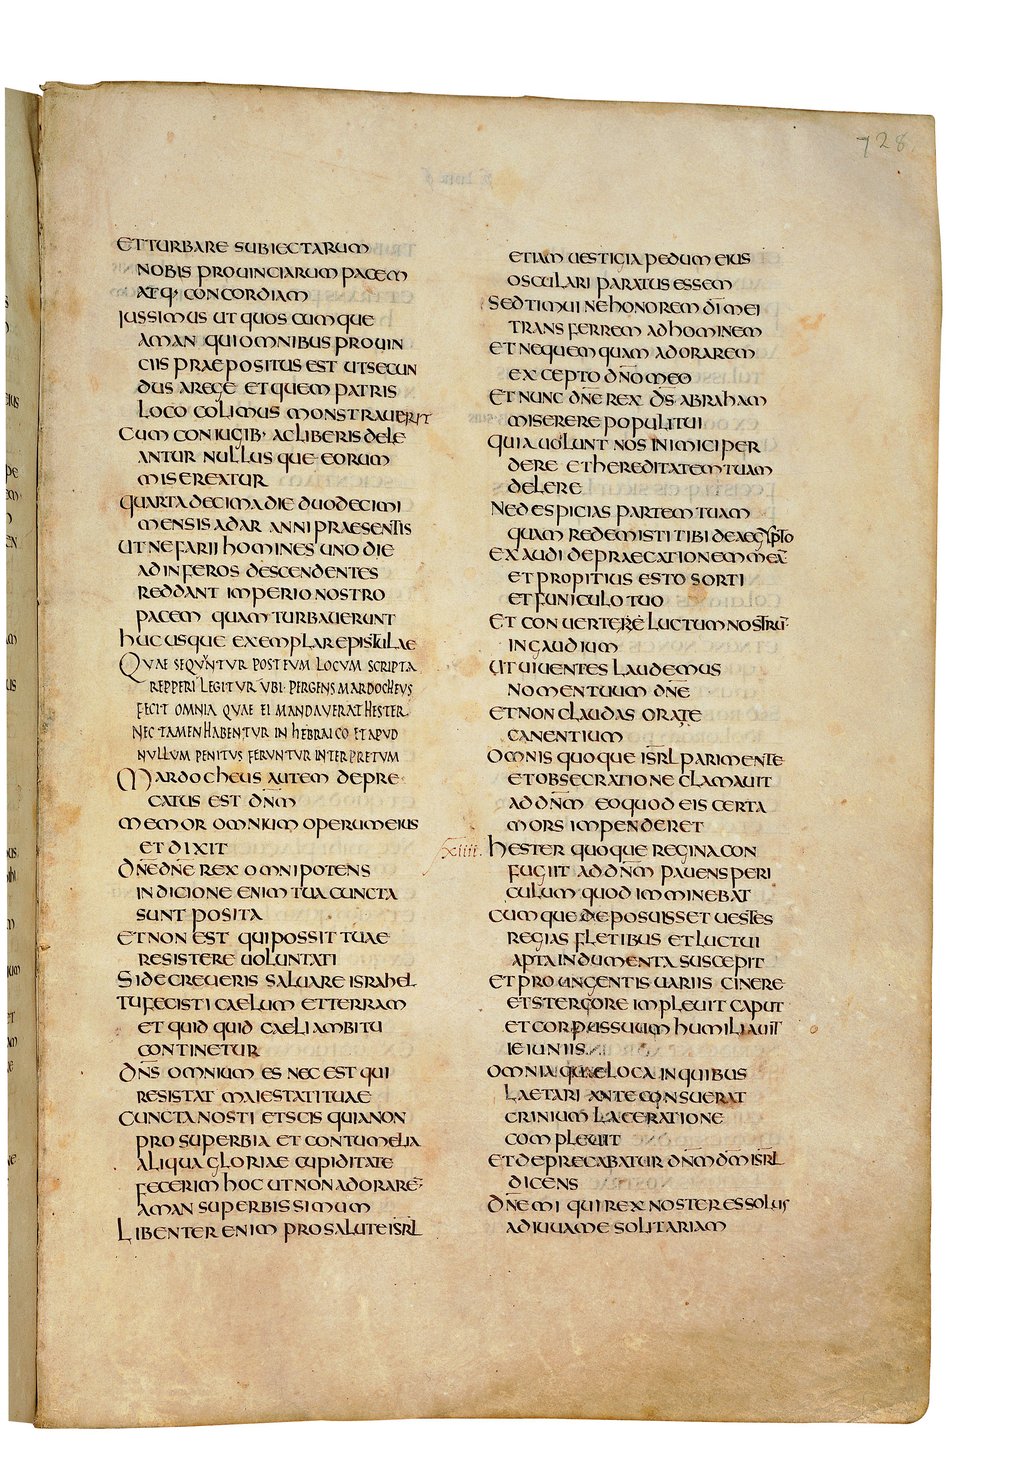 728
ET TURBARE SUBIECTARUM
NOBIS PROUINCIARUM PACEM
ATQ· CONCORDIAM
IUSSIMUS UT QUOSCUMQUE
AMAN QUI OMNIBUS PROUIN
CIIS PRAEPOSITUS EST UT SECUN
DUS A REGE ET QUEM PATRIS
LOCO COLIMUS MONSTRAUERIT
CUM CONIUGIB· AC LIBERIS DELE
ANTUR NULLUSQUE EORUM
MISEREATUR
QUARTA DECIMA DIE DUODECIMI
MENSIS ADAR ANNI PRAESENTIS
UT NEFARII HOMINES UNO DIE
AD INFEROS DESCENDENTES
REDDANT IMPERIO NOSTRO
PACEM QUAM TURBAUERUNT
HUCUSQUE EXEMPLAR EPISTULAE
QVAE SEQVNTVR POST EVM LOCVM SCRIPTA
REPPERI LEGITVR VBI· PERGENS MARDOCHEVS
FECIT OMNIA QVAE EI MANDAVERAT HESTER·
NEC TAMEN HABENTVR IN HEBRAICO ET APVD
NVLLVM PENITVS FERVNTVR INTERPRETVM
MARDOCHEUS AUTEM DEPRE
CATUS EST DN̅M
MEMOR OMNIUM OPERUM EIUS
ET DIXIT
DN̅E DN̅E REX OMNIPOTENS
IN DICIONE ENIM TUA CUNCTA
SUNT POSITA
ET NON EST QUI POSSIT TUAE
RESISTERE UOLUNTATI
SI DECREUERIS SALUARE ISRAHEL
TU FECISTI CAELUM ET TERRAM
ET QUIDQUID CAELI AMBITU
CONTINETUR
DN̅S OMNIUM ES NEC EST QUI
RESISTAT MAIESTATI TUAE
CUNCTA NOSTI ET SCIS QUIA NON
PRO SUPERBIA ET CONTUMELIA
ALIQUA GLORIAE CUPIDITATE
FECERIM HOC UT NON ADORARE̅
AMAN SUPERBISSIMUM
LIBENTER ENIM PRO SALUTE ISR̅L
ETIAM UESTIGIA PEDUM EIUS
OSCULARI PARATUS ESSEM
SED TIMUI NE HONOREM DI̅ MEI
TRANSFERREM AD HOMINEM
ET NEQUEMQUAM ADORAREM
EXCEPTO DN̅O MEO
ET NUNC DN̅E REX DS̅ ABRAHAM
MISERERE POPULI TUI
QUIA UOLUNT NOS INIMICI PER
DERE ET HEREDITATEM TUAM
DELERE
NE DESPICIAS PARTEM TUAM
QUAM REDEMISTI TIBI DE AEGYPTO
EXAUDI DEPRAECATIONEM MEA̅
ET PROPITIUS ESTO SORTI
ET FUNICULO TUO
ET CONUERTERE LUCTUM NOSTRU̅
IN GAUDIUM
UT UIUENTES LAUDEMUS
NOMEN TUUM DN̅E
ET NON CLAUDAS ORA TE
CANENTIUM
OMNIS QUOQUE ISR̅L PARI MENTE
ET OBSECRATIONE CLAMAUIT
AD DN̅M EO QUOD EIS CERTA
MORS IMPENDERET
XIIII. HESTER QUOQUE REGINA CON
FUGIIT AD DN̅M PAUENS PERI
CULUM QUOD IMMINEBAT
CUMQUE DEPOSUISSET UESTES
REGIAS FLETIBUS ET LUCTUI
APTA INDUMENTA SUSCEPIT
ET PRO UNGENTIS UARIIS CINERE
ET STERCORE IMPLEUIT CAPUT
ET CORPUS SUUM HUMILIAUIT
IEIUNIIS
OMNIAQUAE LOCA IN QUIBUS
LAETARI ANTE CONSUERAT
CRINIUM LACERATIONE
COMPLEUIT
ET DEPRECABATUR DN̅M DM̅ ISR̅L
DICENS
DN̅E MI QUI REX NOSTER ES SOLUS
ADIUUA ME SOLITARIAM